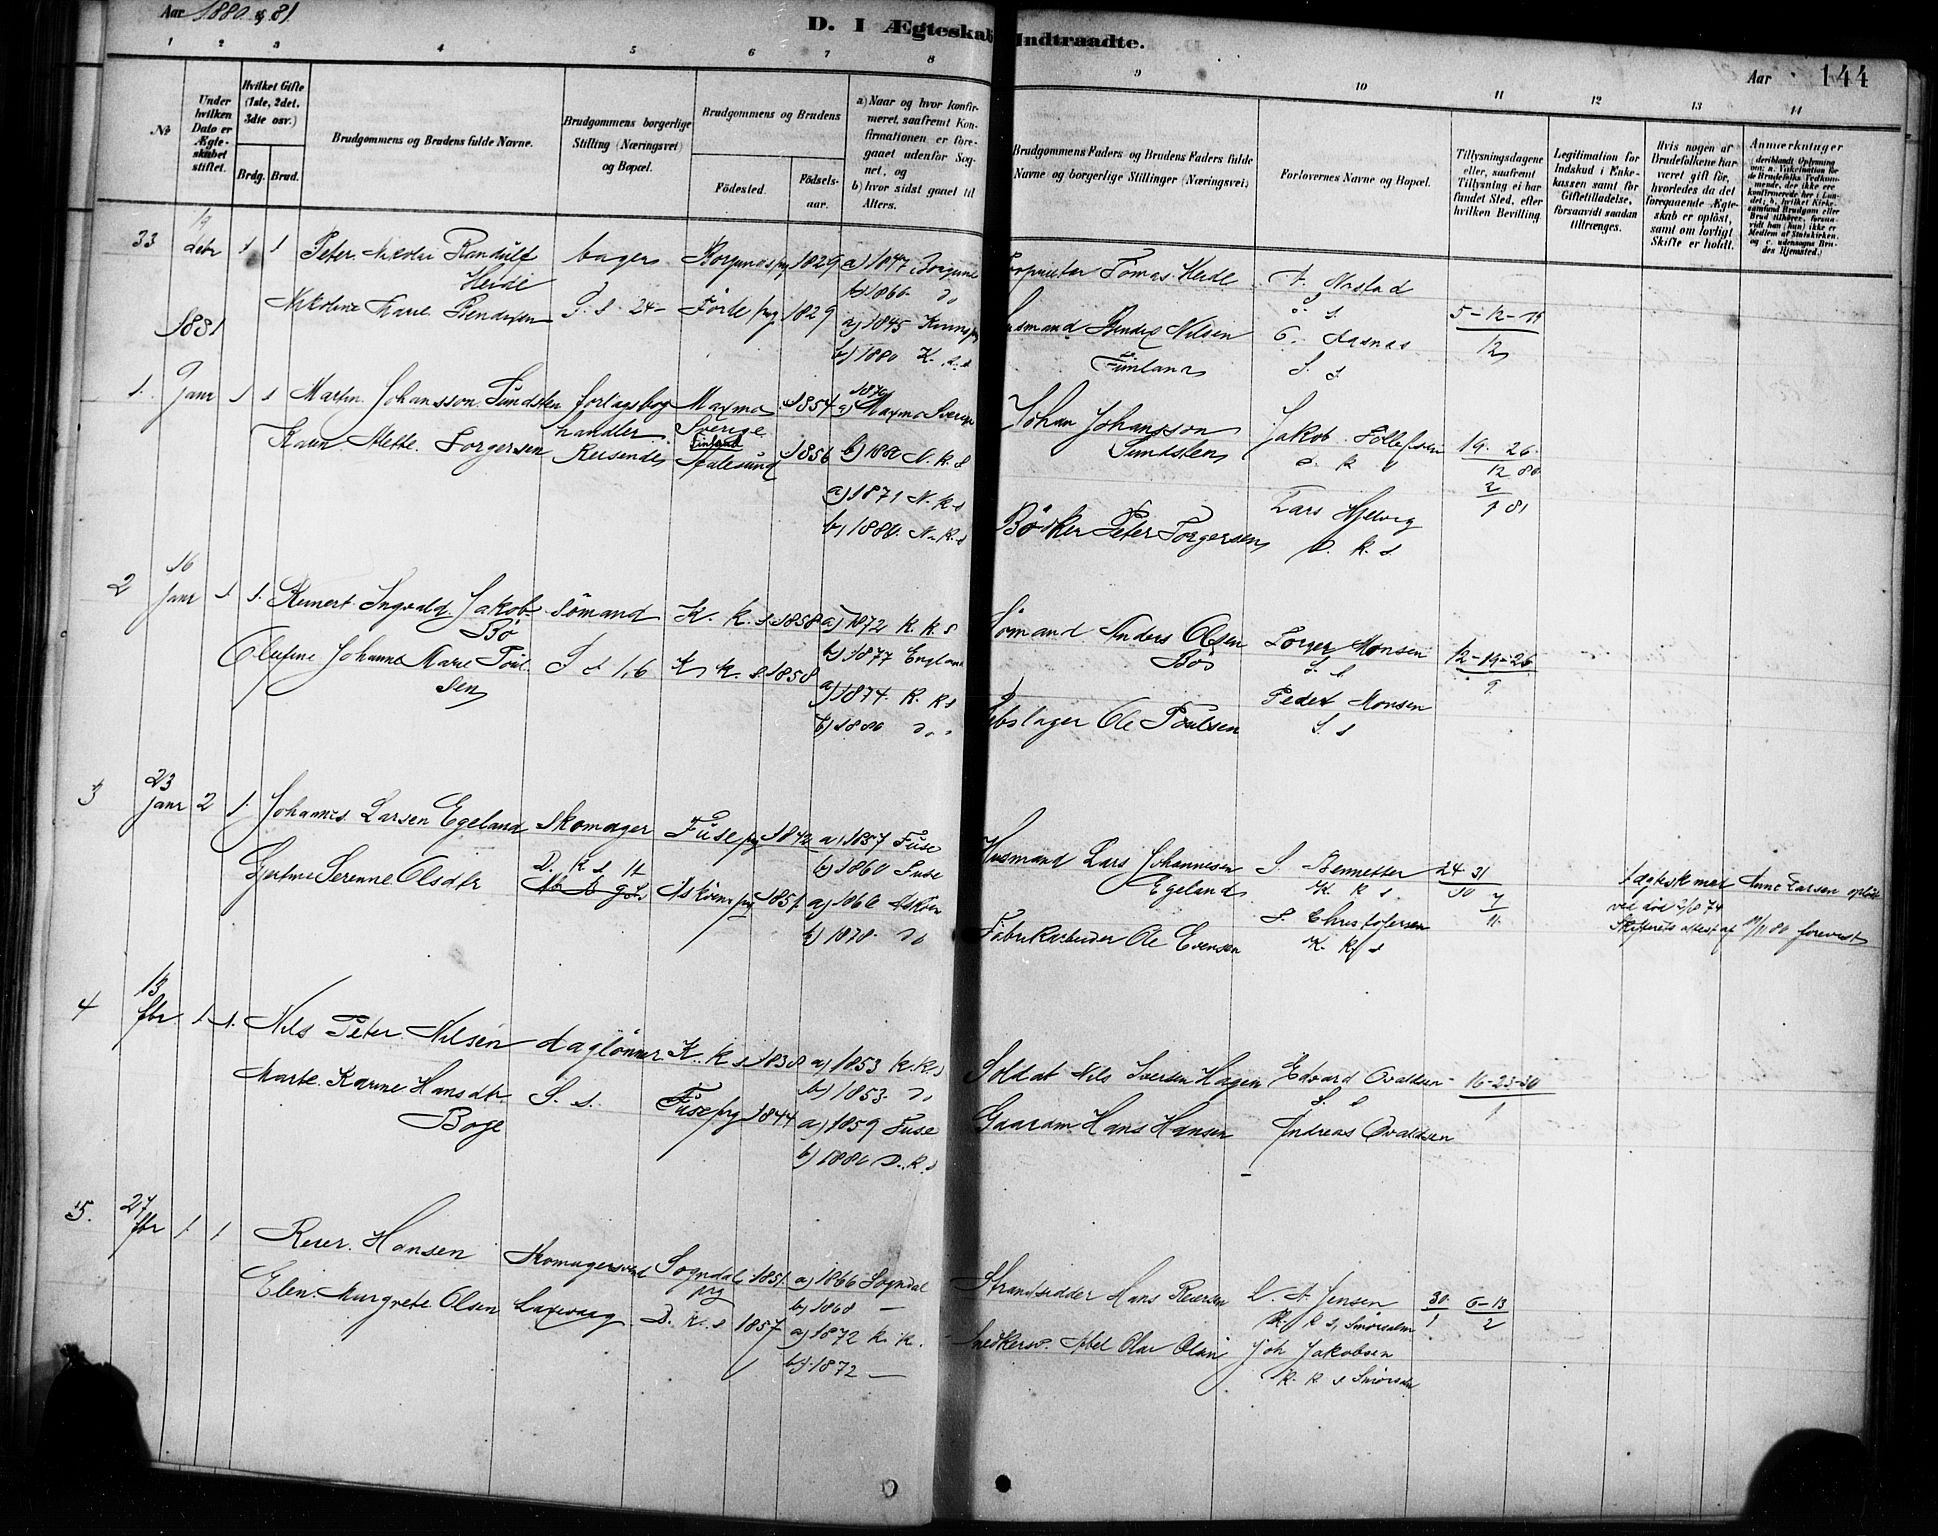 Aar 1880 & 81
D. I Ægteskab Indtraadte.
Aar 144
1 2 3 4 5 6 7 8 9 10 11 12 13 14
No
Under hvilken Dato er Ægteskabet stiftet.
Hvilket Gifte (1ste, 2det, 3dte osv.)
Brdg. Brud.
Brudgommens og Brudens fulde Navne.
Brudgommens borgerlige Stilling (Næringsvei) og Bopæl.
Brudgommens og Brudens
Fødested. Fødsels-aar.
a) Naar og hvor konfirmeret, saafremt Konfirmationen er foregaaet udenfor Sognet, og
b) hvor sidst gaaet til Alters.
Brudgommens Faders og Brudens Faders fulde Navne og borgerlige Stillinger (Næringsvei)
Forlovernes Navne og Bopæl.
Tillysningsdagene eller, saafremt Tillysning ei har fundet Sted, efter hvilken Bevilling.
Legitimation for Indskud i Enkekassen samt for Giftetilladelse, forsaavidt saadan tiltrænges.
Hvis nogen af Brudefolkene har været gift før, hvorledes da det foregaaende Ægteskab er opløst, samt om lovligt Skifte er holdt.
Anmærkninger
33 19 debr 1 1 Peter Randulf Heide bager Borgunds prg 1829 a) 1847 Borgund
b) 1866 do
Proprietær Tomas Heide
S. s
Nikoline Marie Bendixen S. s. 24 Førde prg 1829 a) 1845 Kinns prg
b) 1880 K. s. s
Husmand Bendix Nilsen
S. s
5-12-19
12
1881
1. 9 Janr 1 1 Martin Johansson Sundsten forlagsbog handler Reisende Maxmo Sverige Finland 1854 1870 a) Maxmo Sverige
b) 1880 N. K. S
Johan Johansson Sundsten
Jakob Tollefsen
19. 26.
12 80
2
1 81
Karen Mette Torgersen Aalesund 1856
a) 1871 N. k. s
b) 1880. N. K. s
Bødker Peter Torgersen
Lars Hjelvig
D. k. s
2 16 Janr 1 1. Reinert Ingvald Jakob Bø Sømand K. k. s. 1858 a) 1872 K. k. s
b) 1877 England
Sømand Anders Olsen Bø
Torger Monsen
S. s
12-19-26
9
Olufine Johanne Marie Poulsen S s 1,6 K k. s 1858
a) 1874. K. k s
b) 1880 do
Rebslager Ole Poulsen
Peder Monsen
S. s
3 23 Janr 2 1. Johannes Larsen Egeland Skomager Fuse prg 1842 a) 1857 Fuse
b) 1860 Fuse
Husmand Lars Johannesen Egeland
S. Bennetter
K. K s
24 31
10 7
11
Gjertine Serenne Olsdtr D. K s 14 Askøens prg 1851 a) 1866 Askøen
b) 1878. do
Fabrikarbeider Ole Evensen
S. Christofersen
K. K s
1 ægtesk med Anne Larsen opløst
ved død 2/6 74
Skifterets attest af 19/11 80 forevist
4 13 fbr 1 1. Nils Peter Nilsen daglønner K. k s 1838 a) 1853 k. k. s
b) 1853. do
Soldat Nils Iversen Hagen
Edvard Osvaldsen
S. s
16-23-30
1
Marte Karine Hansdtr Boge S. s. Fuse prg 1844
a) 1859 Fuse
b) 1880 D. k. s
Gaardm Hans Hansen
Andreas Osvaldsen
-
5. 27 fbr 1 1 Reier Hansen Skomagersvend Sogndal prg 1851 a) 1866 Sogndal
b) 1868 —
Strandsidder Hans Reiersen
L. A. Jensen
K. k s, Smørsalm
30 6-13
1 2
Elen Margrete Olsen Laxevaag D. K. s 1857
a) 1872 K. K.
b) 1872 —
Snedkersv. Abel Olai Olsen
Joh Jakobsen
K. k s Smørsalm